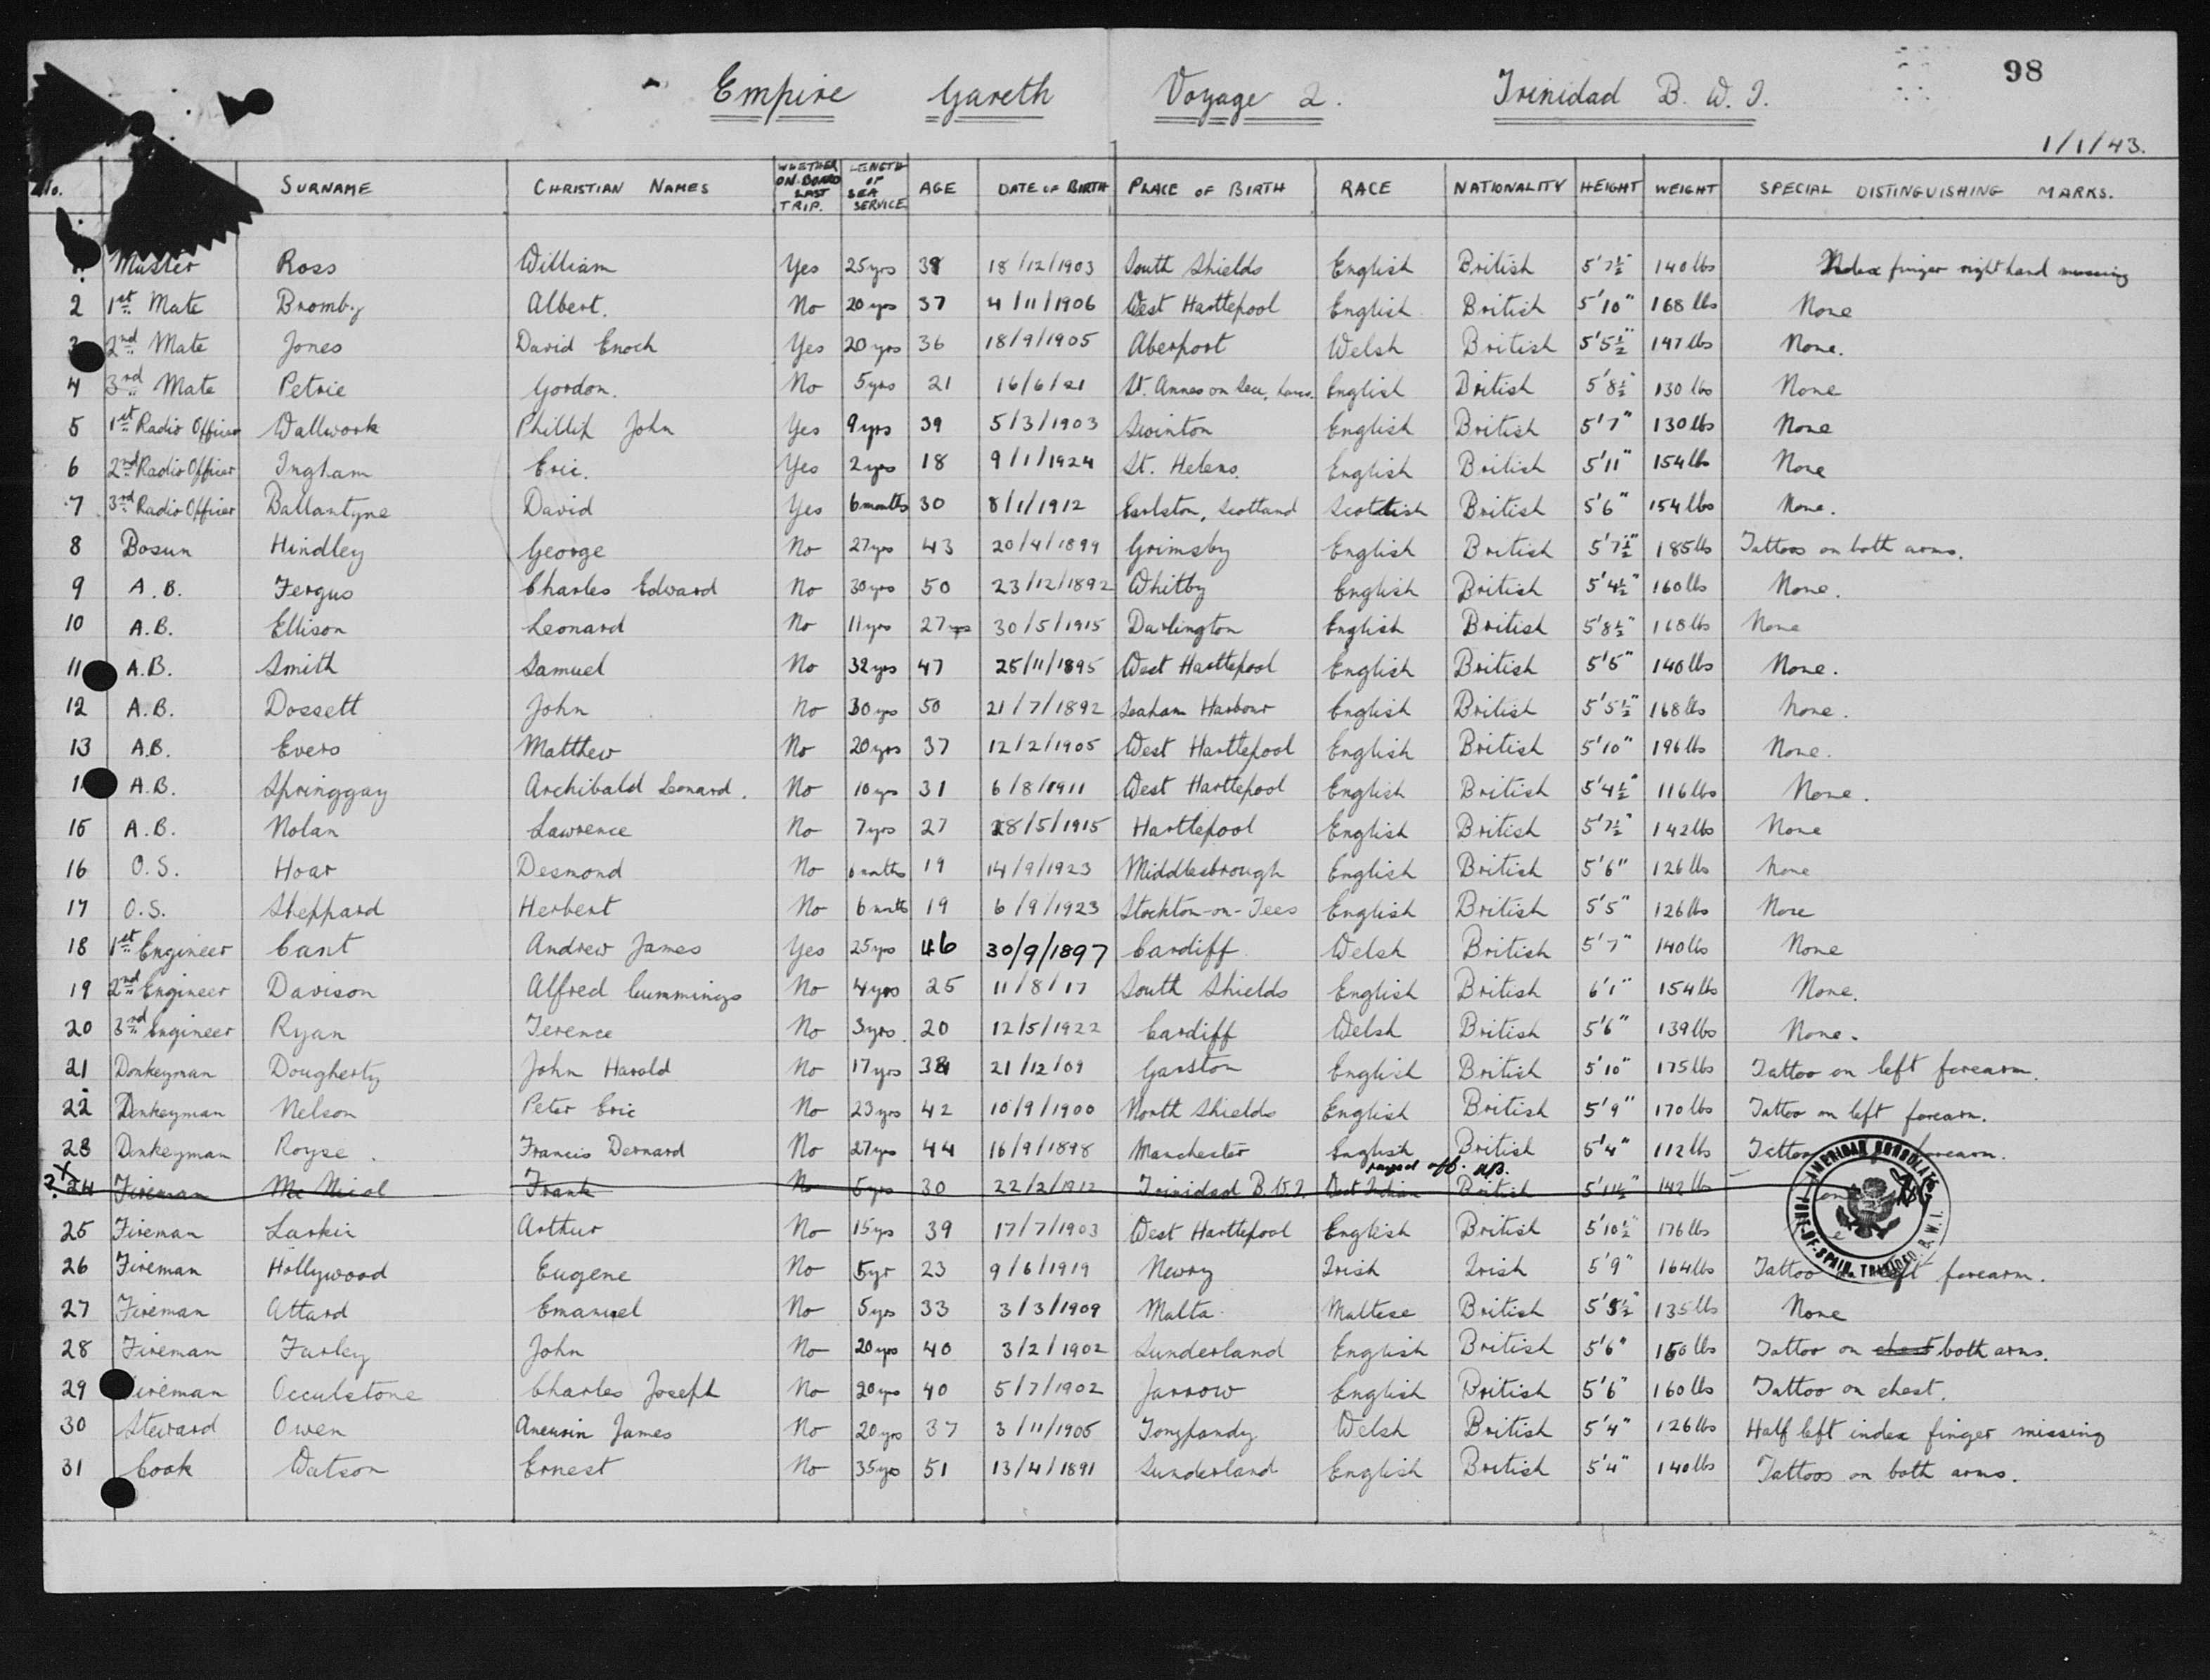 98
Empire Gareth Voyage 2. Trinidad B. W. I.
1/1/43.
No. SURNAME CHRISTIAN NAMES WHETHER ON BOARD LAST TRIP. LENGTH OF SEA SERVICE AGE DATE OF BIRTH PLACE OF BIRTH RACE NATIONALITY HEIGHT WEIGHT SPECIAL DISTINGUISHING MARKS.
Master Ross William Yes 25yrs 39 18/12/1903 South Shields English British 5'7½" 140lbs Index finger right hand missing
2 1st Mate Bromby Albert. No 20 yrs 37 4/11/1906 West Hartlepool English British 5'10" 168 lbs None
2nd Mate Jones David Enoch Yes 20 yrs 36 18/9/1905 Aberport Welsh British 5'5½" 147 lbs None.
4 3rd Mate Petrie Gordon. No 5yrs 21 16/6/21 St. Annes on Sea, Lancs. English British 5'8½" 130 lbs None
5 1st Radio Officer Wallwork Phillip John Yes 9yrs 39 5/3/1903 Swinton English British 5'7" 130lbs None
6 2nd Radio Officer Ingham Eric. Yes 2yrs 18 9/1/1924 St. Helens. English British 5'11" 154 lbs None
7 3rd Radio Officer Ballantyne David Yes 6 months 30 8/1/1912 Earlston, Scotland Scottish British 5'6" 154 lbs None.
8 Bosun Hindley George No 27yrs 43 20/4/1899 Grimsby English British 5'7½" 185lbs Tattoos on both arms.
9 A.B. Fergus Charles Edward No 30yrs 50 23/12/1892 Whitby English British 5'4½" 160lbs None.
10 A.B. Ellison Leonard No 11yrs 27 yrs 30/5/1915 Darlington English British 5'8½" 168 lbs None
11 A.B. Smith Samuel No 32yrs 47 25/11/1895 West Hartlepool English British 5'5" 140 lbs None.
12 A.B. Dossett John No 30 yrs 50 21/7/1892 Seaham Harbour English British 5'5½" 168 lbs None.
13 A.B. Evers Matthew No 20yrs 37 12/2/1905 West Hartlepool English British 5'10" 196 lbs None.
A.B. Springgay Archibald Leonard. No 10 yrs 31 6/8/1911 West Hartlepool English British 5'4½" 116 lbs None.
15 A.B. Nolan Lawrence No 7yrs 27 28/5/1915 Hartlepool English British 5'7½" 142lbs None
16 O.S. Hoar Desmond No 6 months 19 14/9/1923 Middlesbrough English British 5'6" 126 lbs None
17 O.S. Sheppard Herbert No 6 mnths 19 6/9/1923 Stockton-on-Tees English British 5'5" 126 lbs None
18 1st Engineer Cant Andrew James Yes 25yrs 46 30/9/1897 Cardiff Welsh British 5'7" 140lbs None
19 2nd Engineer Davison Alfred Cummings No 4yrs 25 11/8/17 South Shields English British 6'1" 154 lbs None.
20 3rd Engineer Ryan Terence No 3yrs. 20 12/5/1922 Cardiff Welsh British 5'6" 139 lbs None.
21 Donkeyman Dougherty John Harold No 17yrs 21/12/09 Garston English British 5'10" 175lbs Tattoo on left forearm.
22 Donkeyman Nelson Peter Eric No 23yrs 42 10/9/1900 North Shields English British 5'9" 170 lbs Tattoo on left forearm.
23 Donkeyman Royse. Francis Bernard No 27yrs 44 16/9/1898 Manchester English British 5'4" 112 lbs Tattoo forearm.
payed off.
24 Fireman Mc Nicol Frank No 5yrs 30 22/2/1912 Trinidad B.W.I. West Indian British 5'11½" 142 lbs
AMERICAN CONSULATE PORT-OF-SPAIN, TRINIDAD, B.W.I.
25 Fireman Larkin Arthur No 15yrs 39 17/7/1903 West Hartlepool English British 5'10½" 176 lbs
26 Fireman Hollywood Eugene No 5yr 23 9/6/1919 Newry Irish Irish 5'9" 164lbs Tattoo left forearm.
27 Fireman Attard Emanuel No 5yrs 33 3/3/1909 Malta Maltese British 5'5½" 135 lbs None
28 Fireman Farley John No 20yrs 40 3/2/1902 Sunderland English British 5'6" 150 lbs Tattoo on chest both arms.
29 Fireman Occulstone Charles Joseph No 20yrs 40 5/7/1902 Jarrow English British 5'6" 160 lbs Tattoo on chest.
30 Steward Owen Aneurin James No 20 yrs 37 3/11/1905 Tonypandy Welsh British 5'4" 126 lbs Half left index finger missing
31 Cook Watson Ernest No 35yrs 51 13/4/1891 Sunderland English British 5'4" 140 lbs Tattoos on both arms.